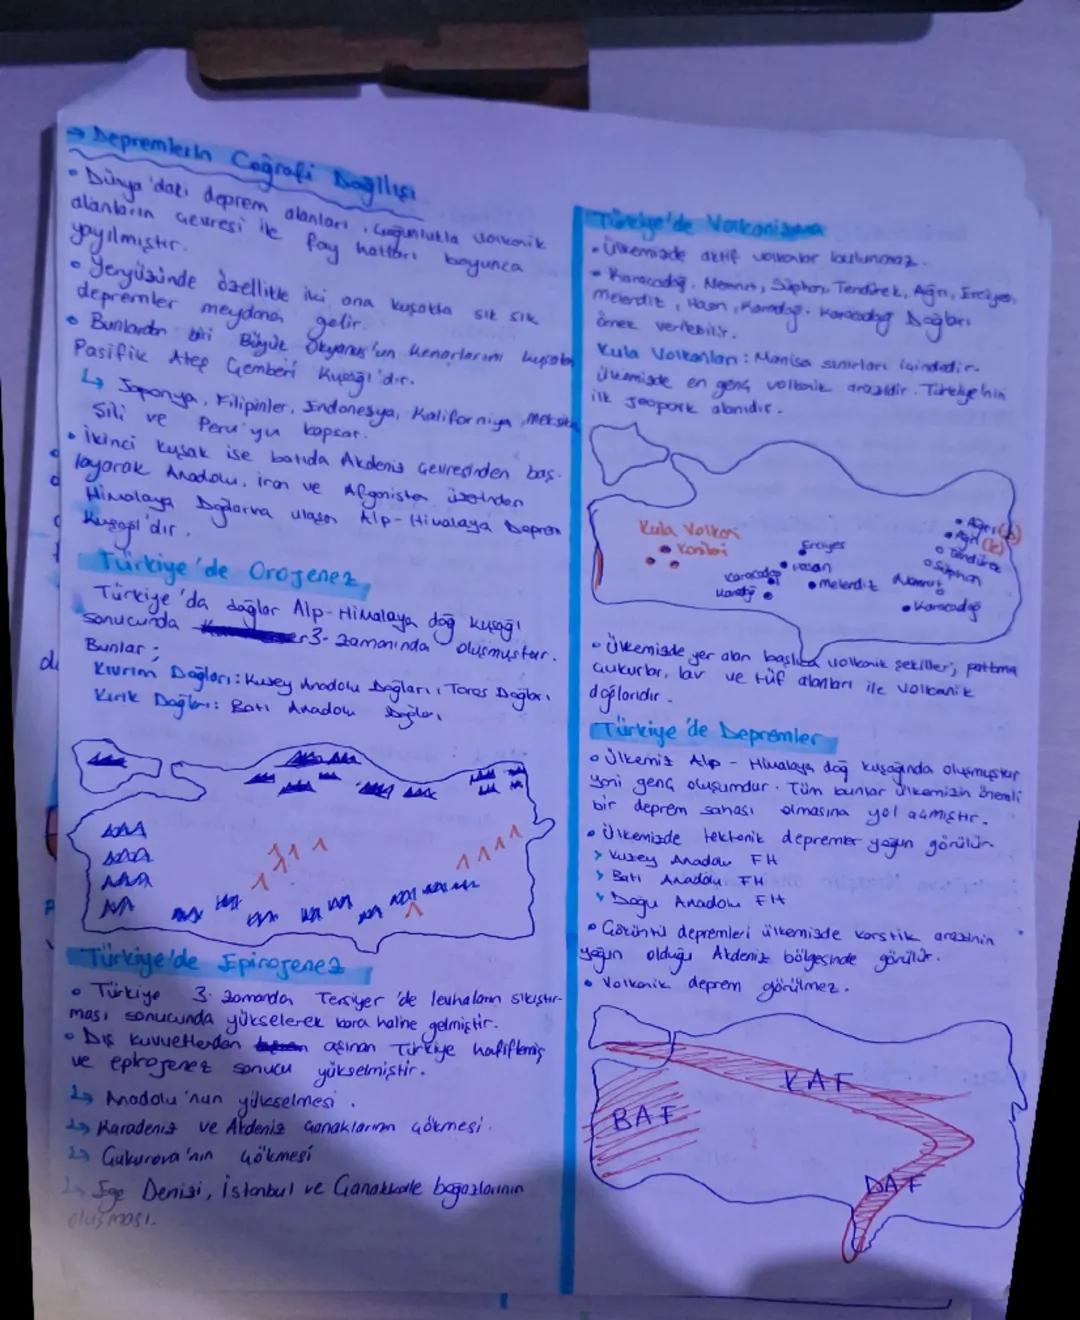 → Depremlerin Coğrafi Dağılışı
• Dünya'daki deprem alanları, çoğunlukla volkanik
alanların çevresi ile fay hatları boyunca
yayılmıştır.
• Yeryüzünde özellikle iki ana kuşakta sık sık
depremler meydana gelir.
• Bunlardan biri Büyük Okyanus'un kenarlarını kuşatan
Pasifik Ateş Çemberi Kuşağı'dır.
↳ Japonya, Filipinler, Endonesya, Kaliforniya, Meksika
Şili ve Peru'yu kapsar.
• İkinci kuşak ise batıda Akdeniz çevresinden baş-
layarak Anadolu, İran ve Afganistan üzerinden
Himalaya Dağlarına ulaşan Alp-Himalaya Deprem
Kuşağı'dır.
Türkiye'de Orojenez
Türkiye'da dağlar Alp-Himalaya dağ kuşağı
sonucunda 3. zamanında oluşmuştur.
Bunlar:
Kıvrım Dağları: Kuzey Anadolu Dağları, Toros Dağları
Kırık Dağları: Batı Anadolu Dağları
Türkiye'de Epirojenez
• Türkiye 3. zamanda Tersiyer'de levhaların sıkıştır-
ması sonucunda yükselerek kara haline gelmiştir.
• Dış kuvvetlerden aşınan Türkiye hafiflemiş
ve epirojenez sonucu yükselmiştir.
↳ Anadolu'nun yükselmesi.
↳ Karadeniz ve Akdeniz Çanaklarının çökmesi.
↳ Çukurova'nın çökmesi
↳ Ege Denizi, İstanbul ve Çanakkale boğazlarının
oluşması.
Türkiye'de Volkanizma
• Ülkemizde aktif volkanlar bulunmaz.
• Karacadağ, Nemrut, Süphan, Tendürek, Ağrı, Erciyes,
melendiz, Hasan, Karadağ, Karacadağ Dağları
örnek verilebilir.
Kula Volkanları: Manisa sınırları içindedir.
Ülkemizde en genç volkanik arazidir. Türkiye'nin
ilk jeopark alanıdır.
Kula Volkan
Konileri
Erciyes
Hasan
melendiz
Karacadağ
Karadağ
Ağrı (b)
Ağrı (k)
Tendürek
Süphan
Nemrut
Karacadağ
• Ülkemizde yer alan başlıca volkanik şekiller; patlama
çukurları, lav ve tüf alanları ile volkanik
dağlarıdır.
Türkiye'de Depremler
• Ülkemiz Alp - Himalaya dağ kuşağında oluşmuştur
yani genç oluşumdur. Tüm bunlar ülkemizin önemli
bir deprem sahası olmasına yol açmıştır.
• Ülkemizde tektonik depremler yoğun görülür.
> Kuzey Anadolu FH
> Batı Anadolu FH
> Doğu Anadolu FH
• Çöküntü depremleri ülkemizde karstik arazinin
yoğun olduğu Akdeniz bölgesinde görülür.
• Volkanik deprem görülmez.
KAF
BAF
DAF